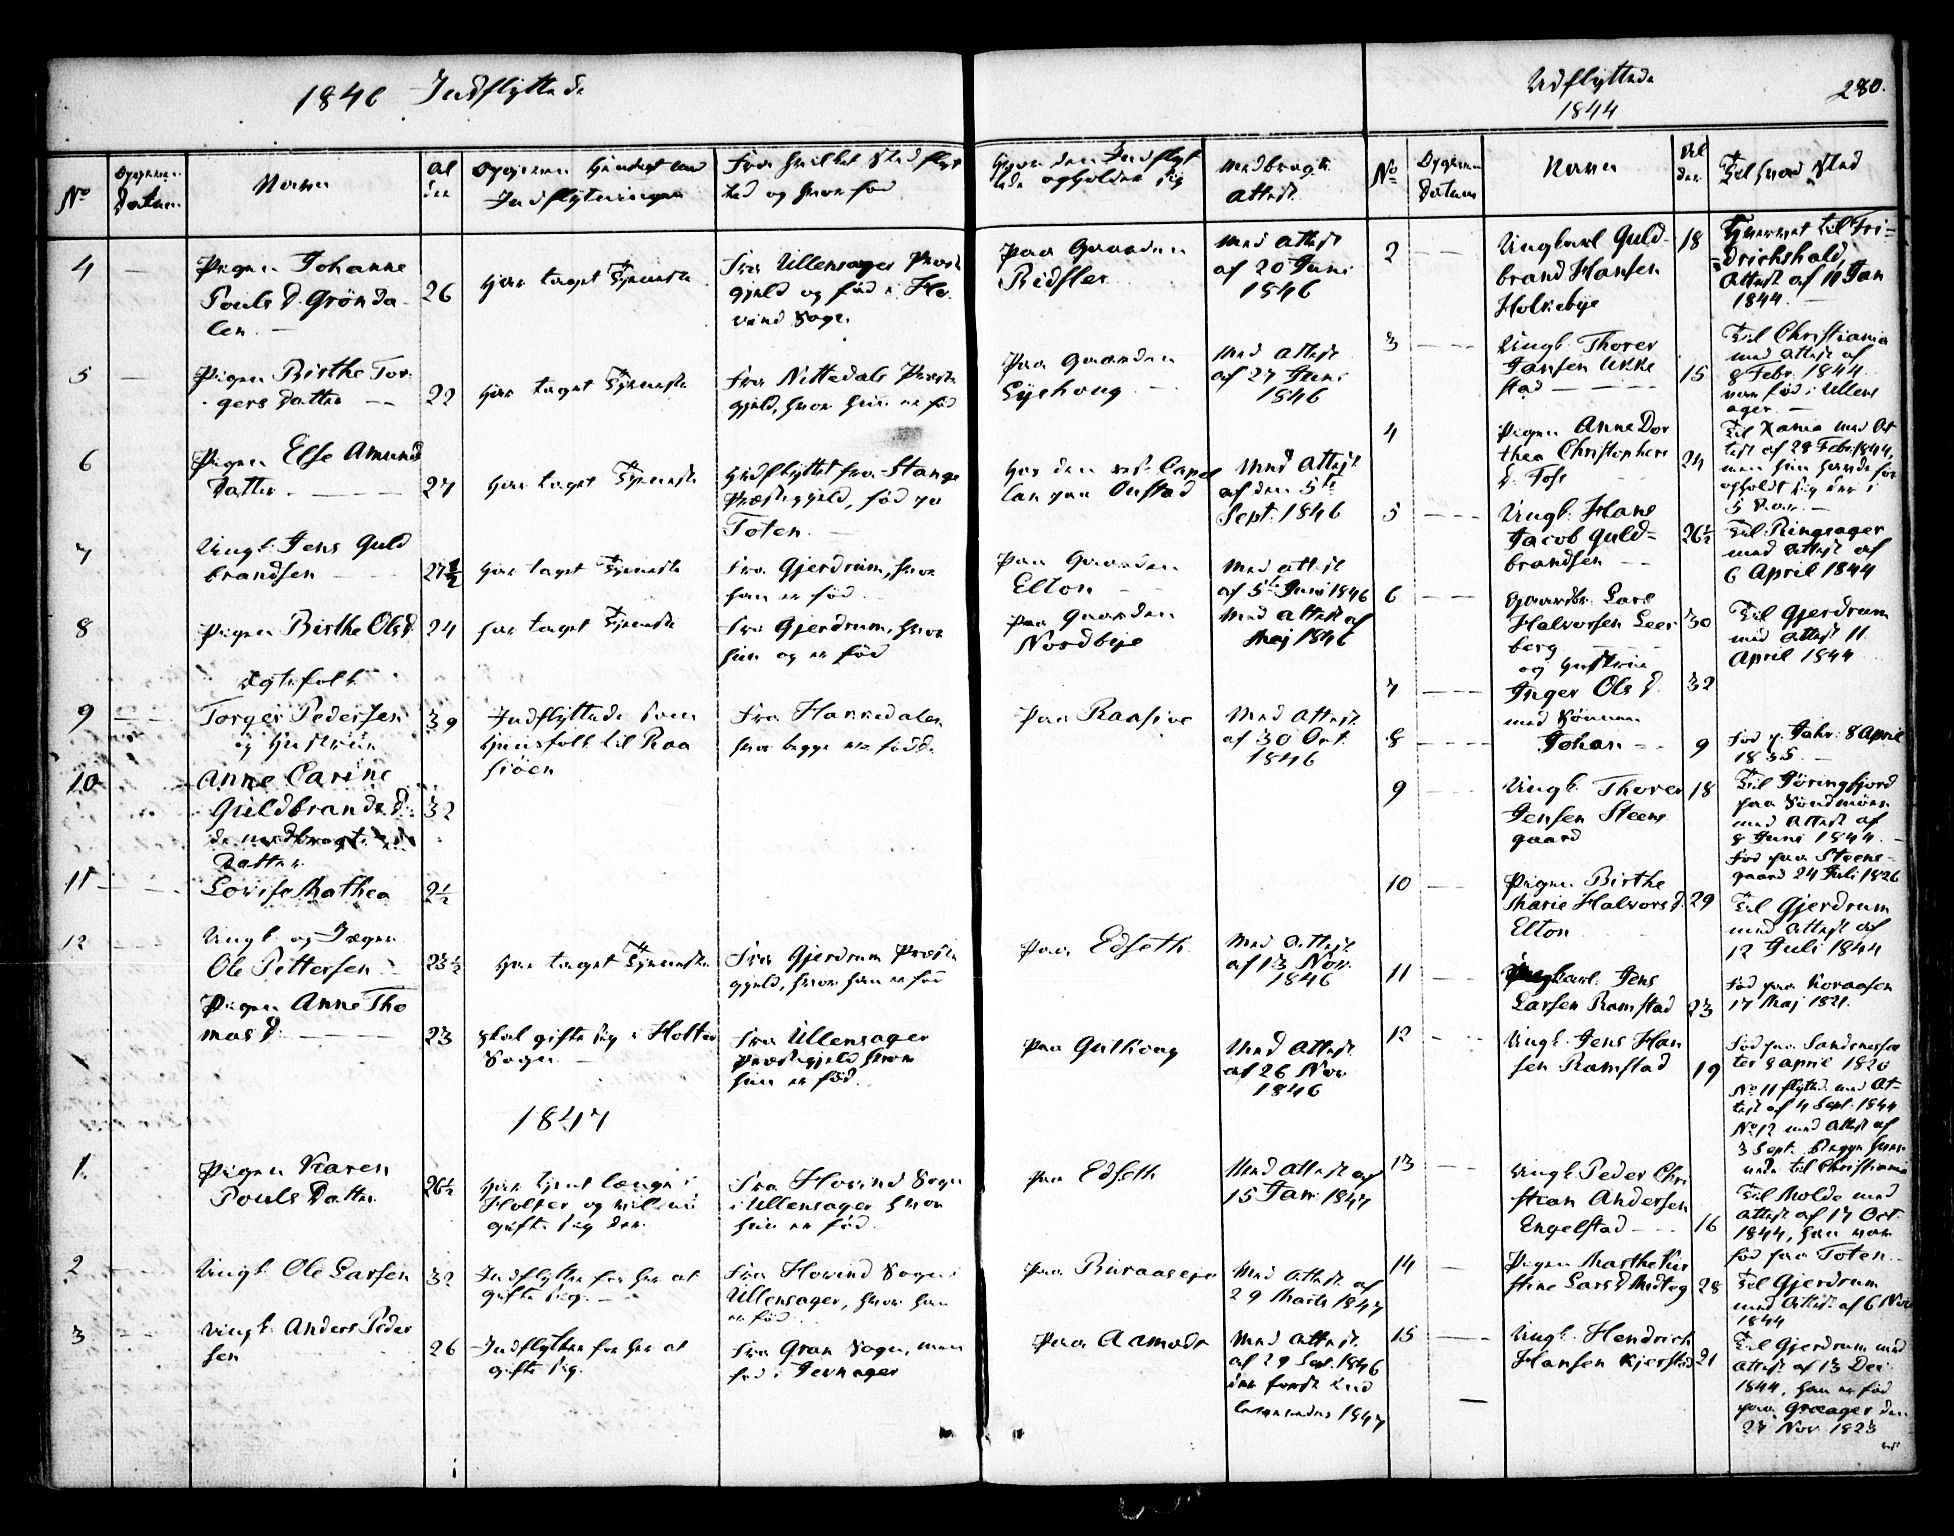 1846 Indflyttede
Udflyttede
1844
280.
No
Datum
Navn
Al
der
Indflytningen
Fra hvilket Sted flyt
tet og hvor fød
Hvor den Indflyt
tede opholder sig
medbragt
Attest
No
Datum
Navn
Al
der
Til hvad Sted
4
Pigen Johanne
Pouls D. Grønda
len.
26
har taget Tjeneste
fra Ullensager Præste
gjeld og fød i Ho
vind Sogn
paa Gaarden
Ridsler
med Attest
af 20 Juni
1846
5
Pigen Birthe Tor
gers Datter
22
har taget Tjeneste
fra Nittedals Præste
gjeld, hvor hun er fød
paa Gaarden
Eyehoug
med Attest
af 27 Juni
1846
6
Pigen Else Amunds
Datter
27
har taget Tjeneste
Hidflyttet fra Stange
Præstegjeld, fød paa
Toten
hos den res. Capel
lan paa Onstad
med Attest
af den 5te
Sept. 1846
7
Ungk. Jens Guld
brandsen
27½
har taget Tjeneste
fra Gjerdrum, hvor
han er fød
paa Gaarden
Elton
med Attest
af 5te Juni 1846
8
Pigen Birthe Olsd.
24
har taget Tjeneste
fra Gjerdrum, hvor
hun og er fød
paa Gaarden
Nordbye
med Attest af
Maj 1846
Ægtefolk
9
Torger Pedersen
og Hustrue
39
Indflyttede som
Huusfolk til Raa
siøen
fra Hannedalen
hvor begge ere fødde
paa Raasiøe
med Attest
af 30 Oct.
1846
10
Anne Carine
Guldbrands D.
32
de medbragte en
Datter
11
Lovise Mathea
2½
12
Ungk. og Jæger
Ole Pettersen
23½
har taget Tjeneste
fra Gjerdrum Præste
gjeld, hvor han er fød
paa Edseth
med Attest
af 13 Nov.
1846
Pigen Anne Tho
mas D.
23
skal gifte sig i Holter
Sogn
fra Ullensager
Præstegjeld hvor
hun er fød
paa Gulhoug
med Attest
af 26 Nov
1846
1847
1.
Pigen Karen
Pouls Datter
26½
har tjent længe i
Holter og vil nu
gifte sig der.
fra Hovind Sogn
i Ullensager hvor
hun er fød
paa Edseth
med Attest af
15 Jan: 1847
2
Ungk. Ole Larsen
32
Indflytter for her at
gifte sig
fra Hovind Sogn i
Ullensager, hvor han
er fød
paa
med Attest af
29 Marts 1847
3
Ungk. Anders Peder
sen
26
Indflytter for her at
gifte sig
fra Gran Sogn, men
fød i Jevnager
paa Aamodt
med Attest
af 29 Sept. 1846
den først
1847
2
Ungkarl Guld
brand Hansen
Holkebye
18
Hjemvet til Fri-
drichshald,
Attest af 11 Jan
1844.
3
Ungk. Thorer
Jansen Ukke
stad
15
Til Christiania
med Attest af
8 Febr. 1844
var fød i Ullens
ager.
4
Pigen Anne Dor
thea Christophers
D. Foss
24
Til Rania med At
test af 28 Febr. 1844,
men hun havde for
opholdt sig der i
5 Aar.
5
Ungk. Hans
Jacob Guld=
brandsen
26½
Til Ringsager
med Attest af
6 April 1844
6
Gaardbr. Lars
Halvorsen Leer
berg
og Hustrue
30
Til Gjerdrum
med Attest 11
April 1844
7
Inger Ols D.
med Sønnen
32
8
Johan
9
fød p. Jahr: 8 April
1835.
9
Ungk. Thorer
Jensen Steens
gaard
18
Til Jøringfjord
paa Søndmøer
med Attest af
8 Juni 1844
fød paa Steens-
gaard 24 Juli 1826
10
Pigen Birthe
Marie Halvors D.
Elton
29
Til Gjerdrum
med Attest af
12 Juli 1844
11
Ungkarl. Jens
Larsen Ramstad
23
fød paa Koraasen
17 Maj 1821.
12
Ungk. Jens Han
sen Ramstad
19
fød paa
8 April 1820
No 11 flytted med At-
test af 4 Sept. 1844
No 12 med Attest af
3 Sept. begge
til Christiania
13
Ungk. Peder Chri
stian Andersen
Engelstad
16
Til Molde med
Attest af 17 Oct.
1844, han var
fød paa Toten
14
Pigen Marthe Kir
stine Lars D. Midteg
28
Til Gjerdrum
med Attest af 6 Nov
1844
15
Ungk. Hendrich
Hansen Kjerstad
21
Til Gjerdrum med
Attest af 13 Dec
1844, han er fød
paa Græager den
28 Nov 1823